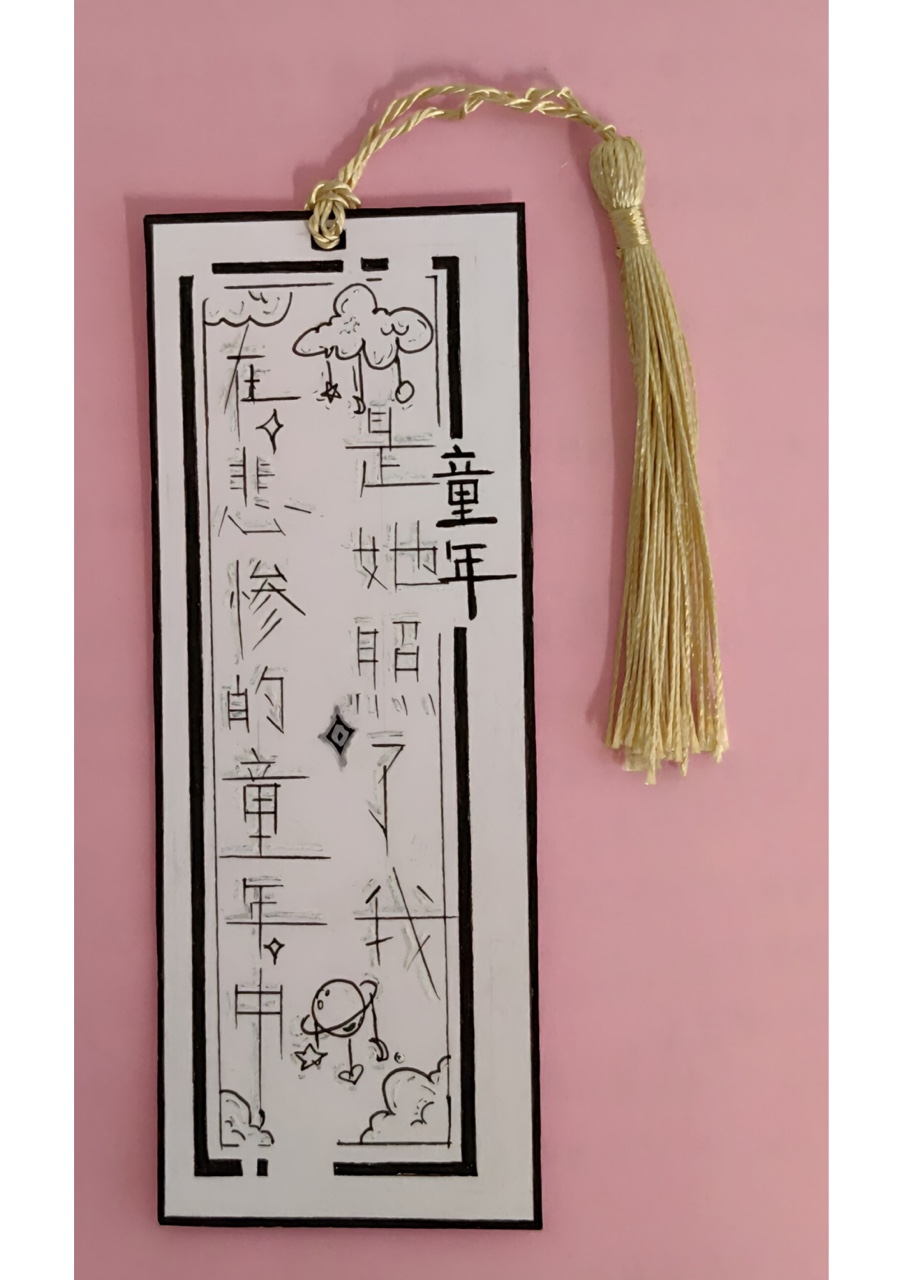 童年
是她照了我
在悲惨的童年中